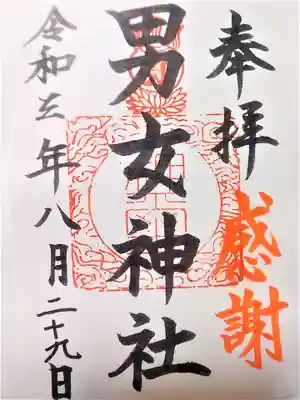 奉拝
感謝
男女神社
令和三年八月二十九日